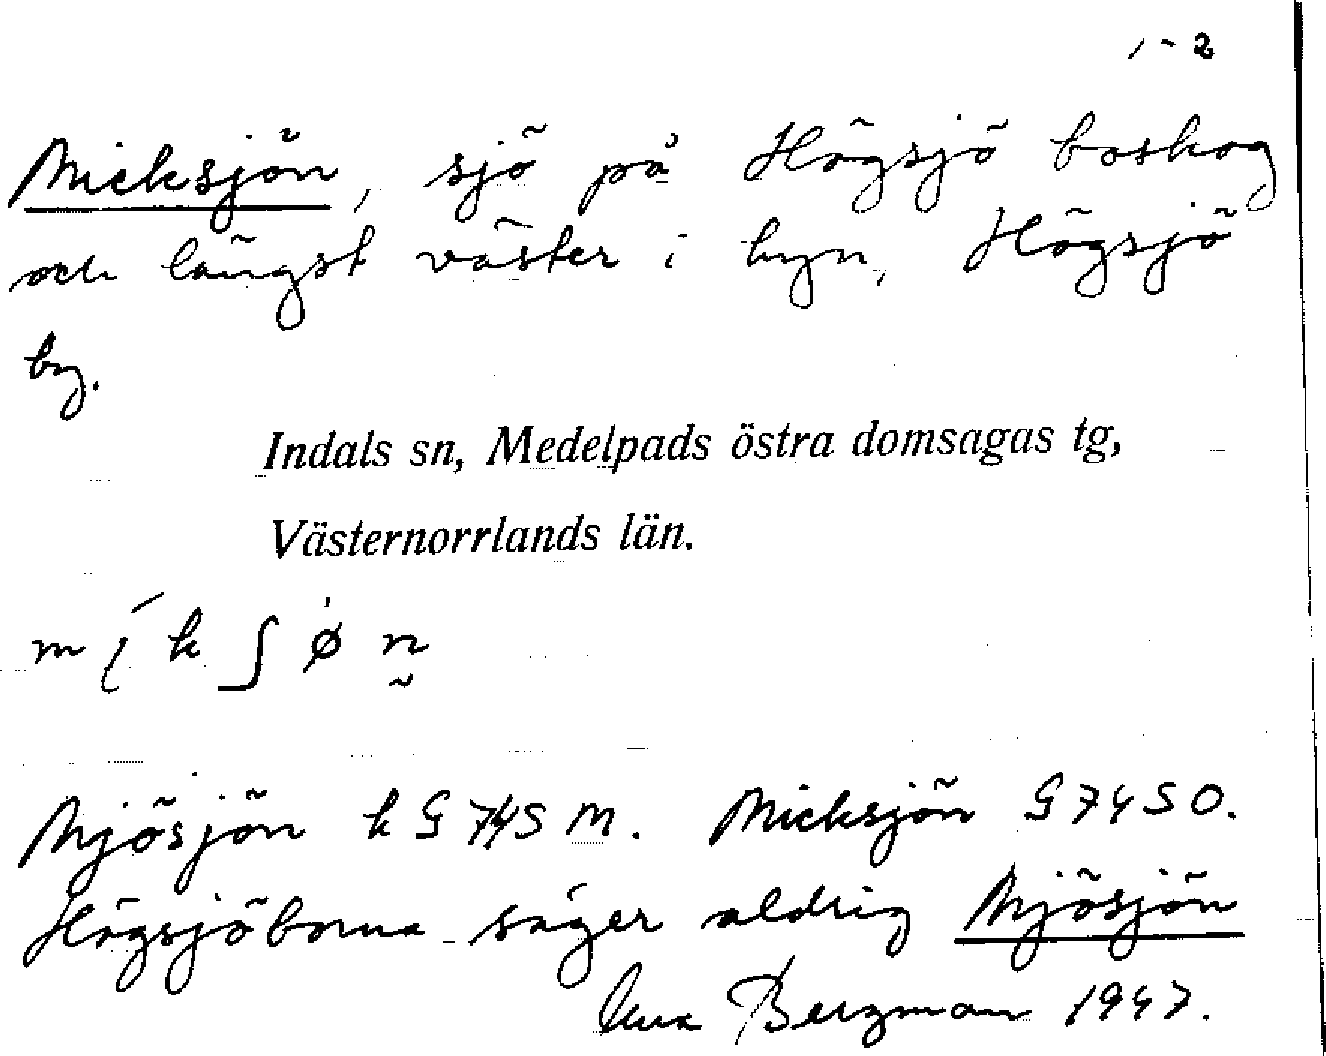 1-2
Micksjön, sjö på Högsjö boskog
och längst väster i byn, Högsjö
by.
Indals sn, Medelpads östra domsagas tg,
Västernorrlands län.
m í k ʃ ø n̰
Mjösjön k G 745 M. Micksjön G 745 O.
Högsjöborna säger aldrig Mjösjön
Bergman 1947.